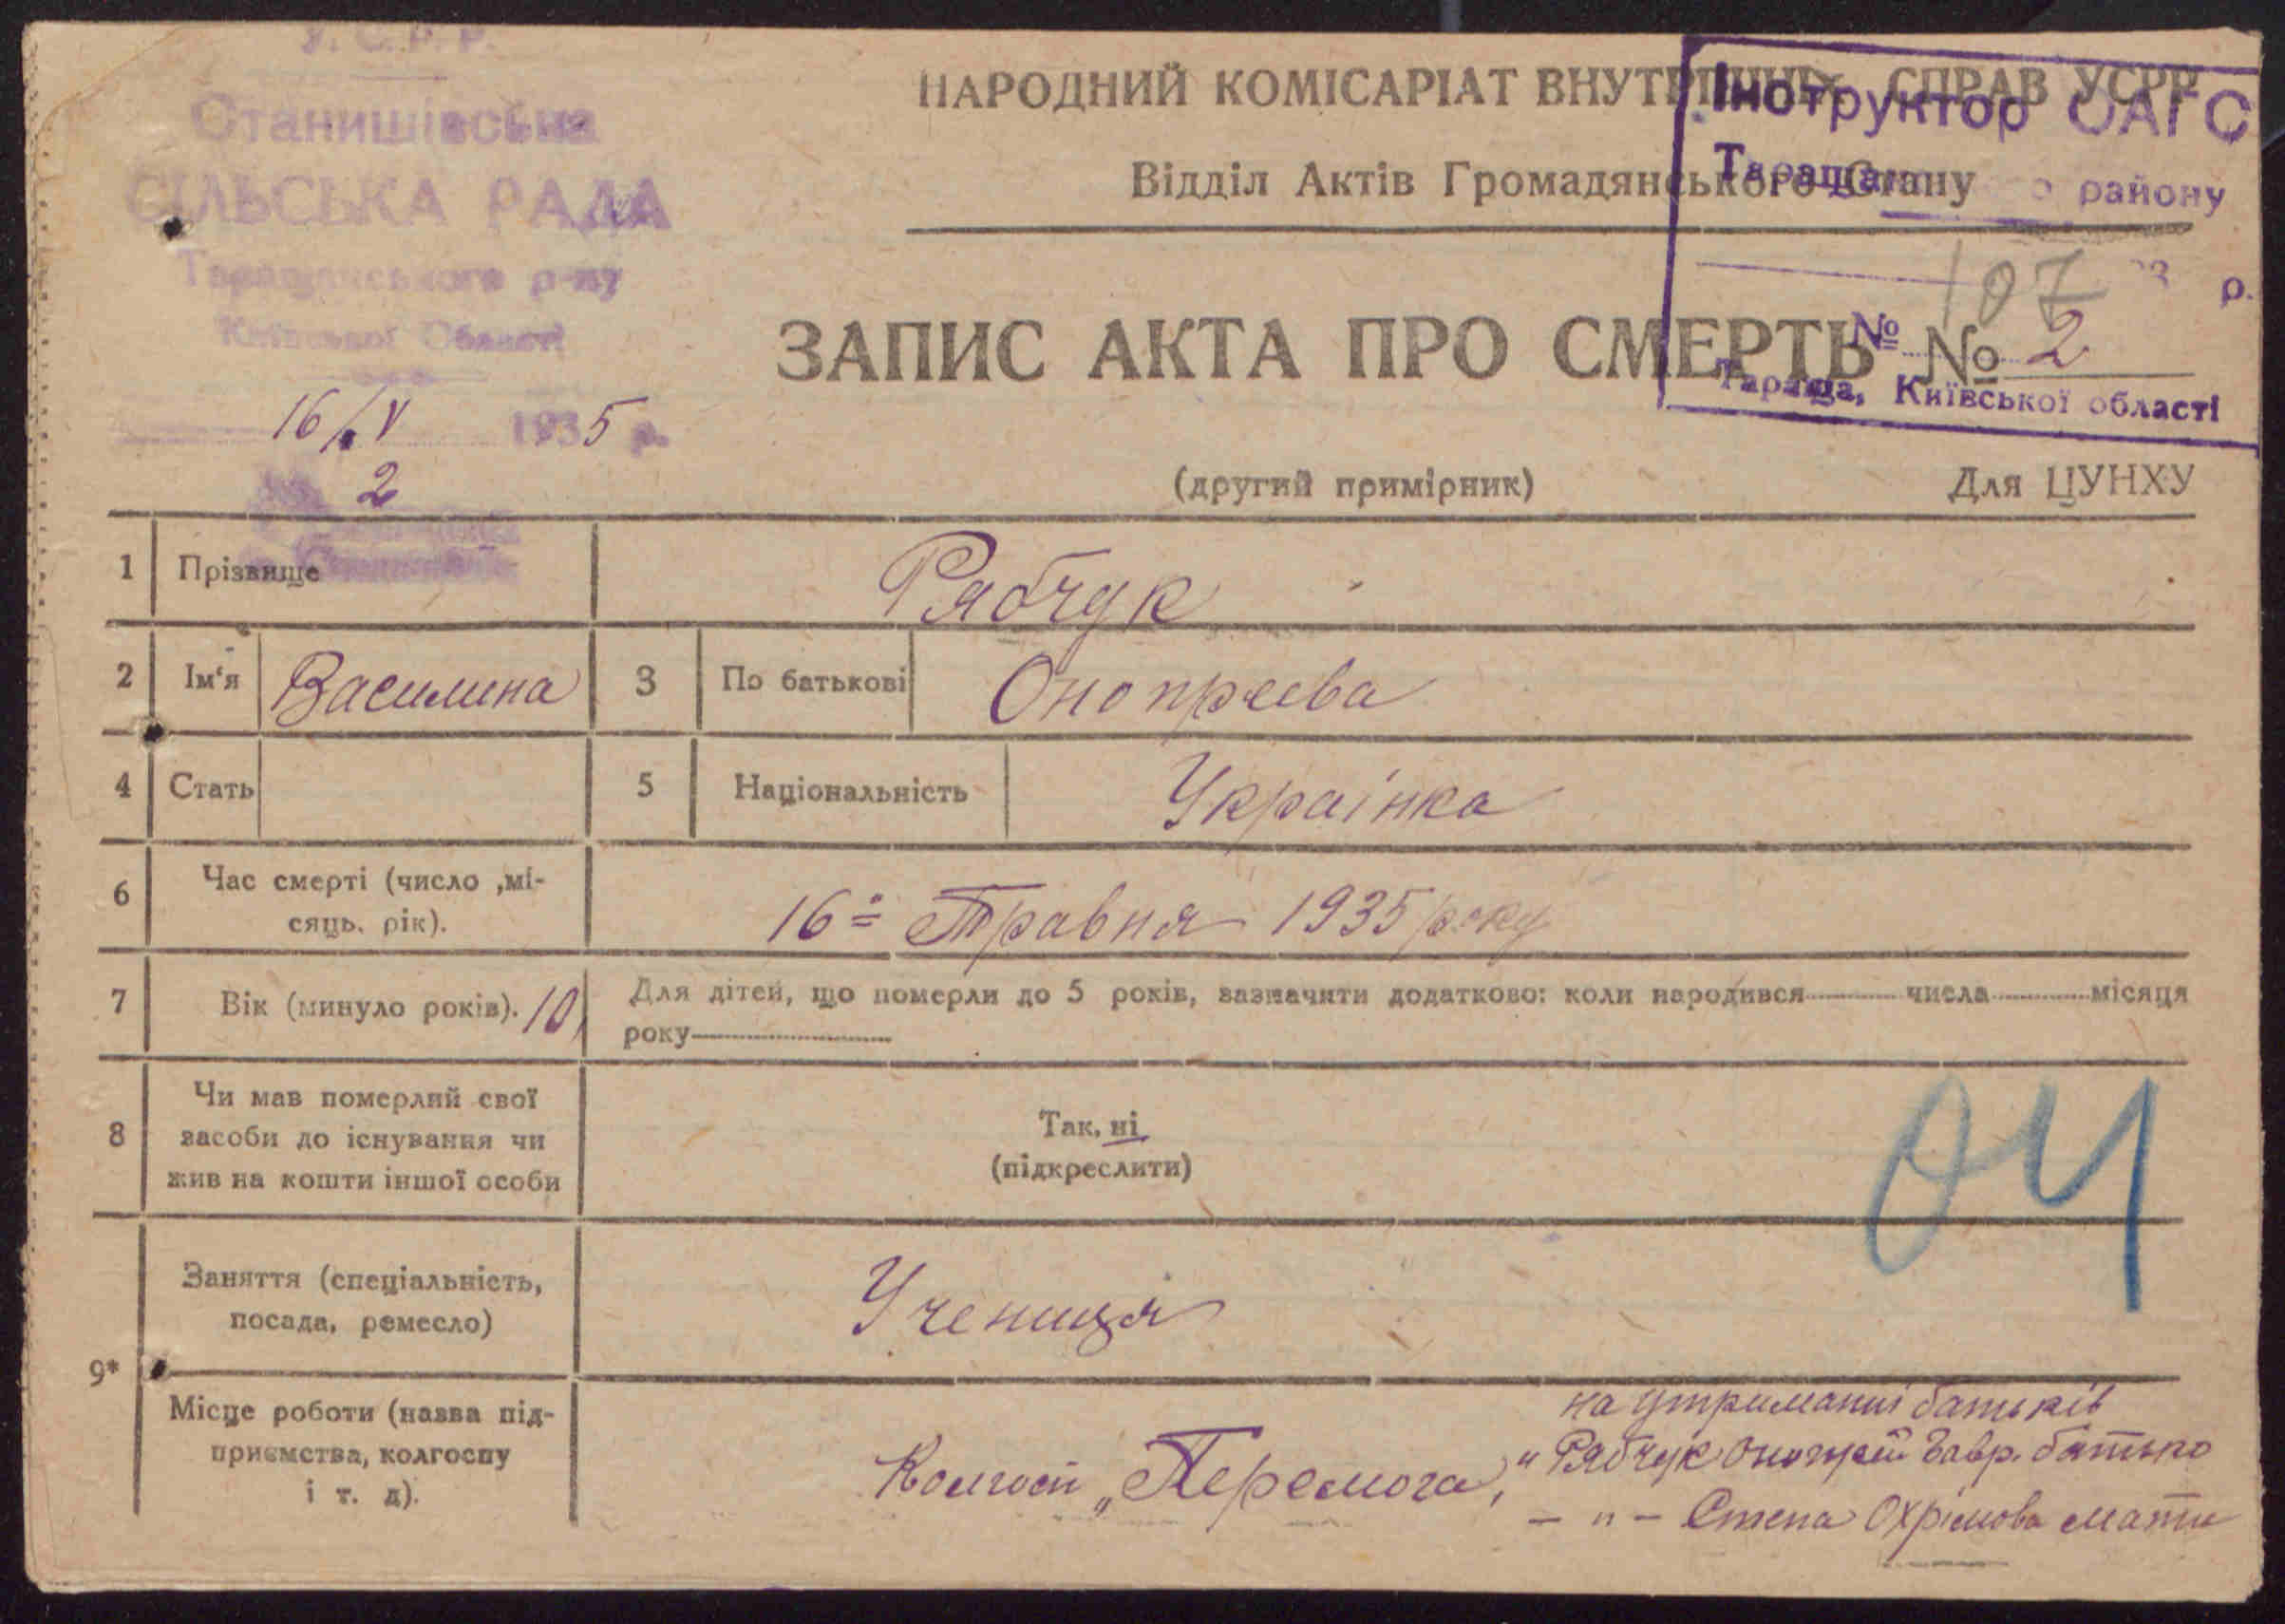 У. С. Р. Р.
Станишівська
СІЛЬСЬКА РАДА
Таращанського р-ну
Київської Області
16/V 1935 р.
2
НАРОДНИЙ КОМІСАРІАТ ВНУТРІШНІХ СПРАВ УСРР
Відділ Актів Громадянського Стану
Інструктор ОАГС
Таращан о району
193 р.
№ 107
Тараща, Київської області
ЗАПИС АКТА ПРО СМЕРТЬ № 2
(другий примірник) Для ЦУНХУ
1 Прізвище Рябчук
2 Ім'я Василина 3 По батькові Онопрєєва
4 Стать 5 Національність Українка
6 Час смерті (число ,мі-
сяць. рік).
16 Травня 1935 року
7 Вік (минуло років). 10 Для дітей, що померли до 5 років, зазначити додатково: коли народився числа місяця
року
8 Чи мав померлий свої
засоби до існування чи
жив на кошти іншої особи
Так, ні
(підкреслити)
04
9*
Заняття (спеціальність,
посада, ремесло)
Учениця
Місце роботи (назва під-
приємства, колгоспу
і т. д).
Колгосп „Перемога,"
на утриманні батьків
Рябчук Онопрій Гавр. батько
– „ – Степа Охрімова мати